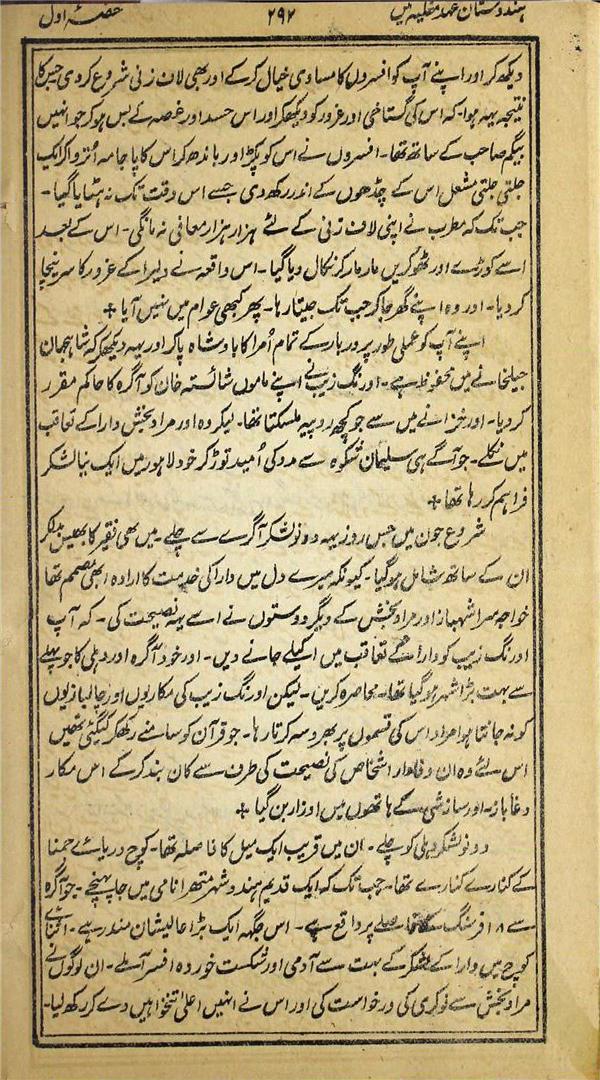 ہندوستان عہد مغلیہ میں ۲۹۲ حصۂ اول
دیکھ کر اور اپنے آپ کو افسروں کا مساوی خیال کر کے اور بھی لاف زنی شروع کر دی جس کا
نتیجہ یہہ ہوا۔ کہ اس کی گستاخی اور غرور کو دیکھکر اور اس حسد اور غصہ کے بس ہو کر جو انہیں
بیگم صاحب کے ساتھ تھا۔ افسروں نے اس کو پکڑا اور باندھ کر اس کا پاجامہ اُتروا کر ایک
جلتی جلتی مشعل اس کے چڈھوں کے اندر رکھ دی جسے اس وقت تک نہ ہٹایا گیا۔
جب تک کہ مطرب نے اپنی لاف زنی کے لئے ہزار ہزار معافی نہ مانگی۔ اس کے بعد
اسے کوڑے اور ٹھوکریں مار مار کر نکال دیا گیا۔ اس واقعہ نے دلیرا کے غرور کا سر نیچا
کر دیا۔ اور وہ اپنے گھر جا کر جب تک جیتا رہا۔ پھر کبھی عوام میں نہیں آیا +
اپنے آپ کو عملی طور پر دربار کے تمام اُمرا کا بادشاہ پا کر اور یہہ دیکھکر کہ شاہجہان
جیلخانے میں محفوظ ہے۔ اورنگ زیب نے اپنے ماموں شائستہ خان کو آگرہ کا حاکم مقرر
کر دیا۔ اور خزانے میں سے جو کچھ روپیہ ملسکتا تھا۔ لیکر وہ اور مراد بخش دارا کے تعاقب
میں نکلے۔ جو آگے ہی سلیمان شکوہ سے مدد کی اُمید توڑ کر خود لاہور میں ایک نیا لشکر
فراہم کر رہا تھا +
شروع جون میں جس روز یہہ دونو لشکر آگرے سے چلے۔ میں بھی فقیر کا بھیس بدلکر
ان کے ساتھ شامل ہو گیا۔ کیونکہ میرے دل میں دارا کی خدمت کا ارادہ ابھی مصمم تھا
خواجہ سرا شہباز اور مراد بخش کے دیگر دوستوں نے اسے یہہ نصیحت کی۔ کہ آپ
اورنگ زیب کو دارا کے تعاقب میں اکیلے جانے دیں۔ اور خود آگرہ اور دہلی کا جو پہلے
سے بہت بڑا شہر ہو گیا تھا۔ محاصرہ کریں۔ لیکن اورنگ زیب کی مکاریوں اور چالبازیوں
کو نہ جانتا ہوا مراد اس کی قسموں پر بھروسہ کرتا رہا۔ جو قرآن کو سامنے رکھکر کیگئی تھیں
اس لئے وہ ان وفادار اشخاص کی نصیحت کی طرف سے کان بند کر کے اس مکار
دغاباز۔ اور سازشی کے ہاتھوں میں اوزار بن گیا +
دونو لشکر دہلی کو چلے۔ ان میں قریب ایک میل کا فاصلہ تھا۔ کوچ دریائے جمنا
کے کنارے کنارے تھا۔ جب تک کہ ایک قدیم ہندو شہر متھرا نامی میں جا پہنچے۔ جو آگرہ
سے ۱۸ فرسنگ کے فاصلے پر واقع ہے۔ اس جگہہ ایک بڑا عالیشان مندر ہے۔ اثنائے
کوچ میں دارا کے لشکر کے بہت سے آدمی اور شکست خوردہ افسر آ ملے۔ ان لوگوں نے
مراد بخش سے نوکری کی درخواست کی اور اس نے انہیں اعلیٰ تنخواہیں دے کر رکھ لیا۔